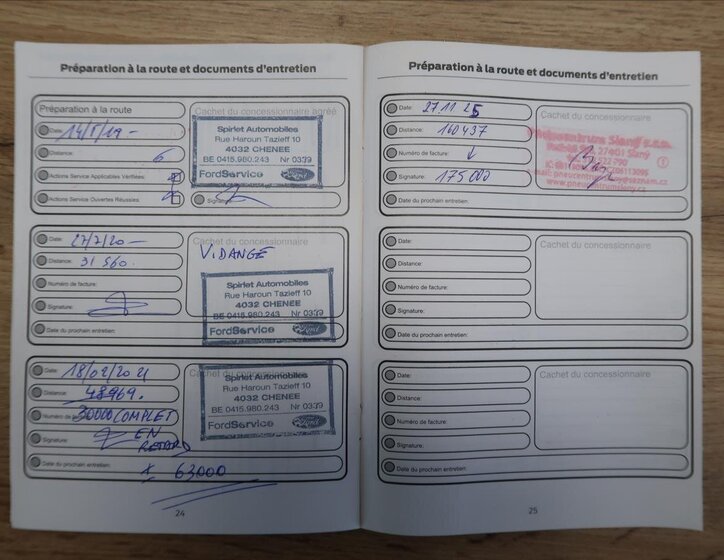 Préparation à la route et documents d'entretien
Préparation à la route
Cachet du concessionnaire agréé
Date:
14/5/19 -
Distance:
6
Actions Service Applicables Vérifiées:
Actions Service Ouvertes Réussies:
Spirlet Automobiles
Rue Haroun Tazieff 10
4032 CHENEE
BE 0415.980.243 Nr 0339
FordService
Ford
Date:
27/7/20 -
Distance:
31 560.
Numéro de facture:
Signature:
Date du prochain entretien:
Cachet du concessionnaire
VIDANGE
Spirlet Automobiles
Rue Haroun Tazieff 10
4032 CHENEE
BE 0415.980.243 Nr 0339
FordService
Ford
Date:
18/02/2021
Distance:
48969.
30000 COMPLET
Signature
EN
RETARD
Date du prochain entretien:
± 63000
Cachet du concessionnaire
Spirlet Automobiles
Rue Haroun Tazieff 10
4032 CHENEE
BE 0415.980.243 Nr 0339
FordService
Ford
24
Préparation à la route et documents d'entretien
Date:
27.11 25
Distance:
160 437
Numéro de facture:
↓
Signature:
175 000
Date du prochain entretien:
Cachet du concessionnaire
Slaný s.r.o.
27401 Slaný
www.pneucentrumslany.cz
Date:
Distance:
Numéro de facture:
Signature:
Date du prochain entretien:
Cachet du concessionnaire
Date:
Distance:
Numéro de facture:
Signature:
Date du prochain entretien:
Cachet du concessionnaire
25